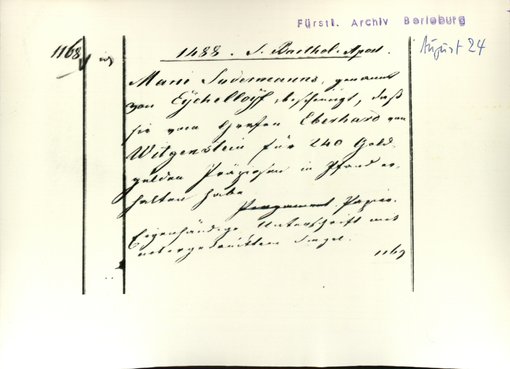 Fürstl. Archiv Berleburg
August 24
1168
1488. S. Barthol. Apost.
genannt
von bescheinigt, daß
sie vom Grafen Eberhard von
Witgenstein für 240 Gold-
gulden in Pfand er-
halten habe.
Pergament Papier.
Eigenhändige Unterschrift mit
untergedrücktem Siegel.
1169